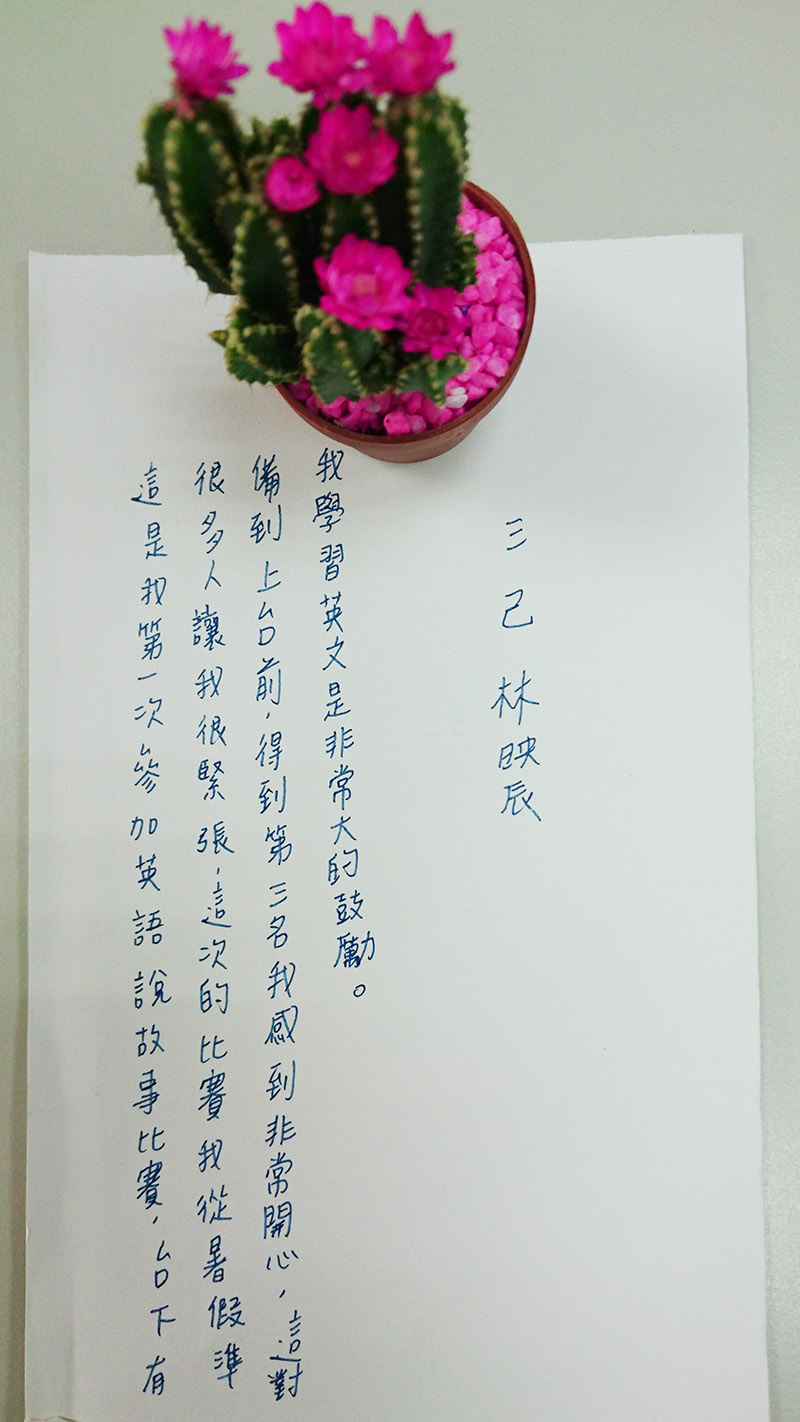 這是我第一次參加英語說故事比賽，台下有
很多人讓我很緊張，這次的比賽我從暑假準
備到上台前，得到第三名我感到非常開心，這對
我學習英文是非常大的鼓勵。
三己 林映辰